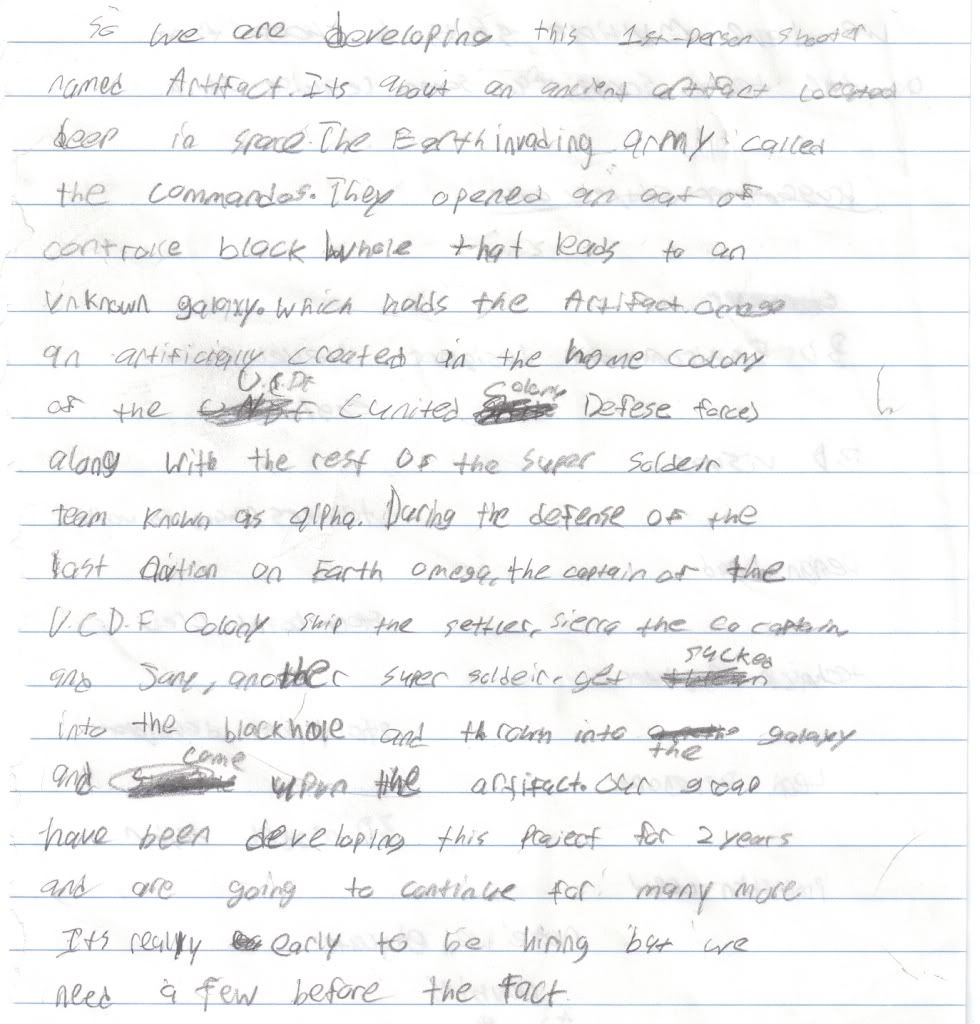 So we are developing this 1st-person shooter
named Artifact. Its about an ancient artifact located
deep in space. The Earth invading army called
the commandos. They opened an out of
controlle black whole that leads to an
unknown galaxy. which holds the Artifact. omega
an artificially created in the home colony
of the U.C.DF (united Colony Defese forces)
along with the rest of the super soldeir
team known as alpha. During the defense of the
last on Earth omega, the captain of the
U.C.D.F Colony ship the settler, sierra the co captain
and Jane, another super soldeir. get sucked
into the blackhole and thrown into the galaxy
and came upon the artifact. Our group
have been developing this Project for 2 years
and are going to continue for many more
Its really early to be hiring but we
need a few before the fact.